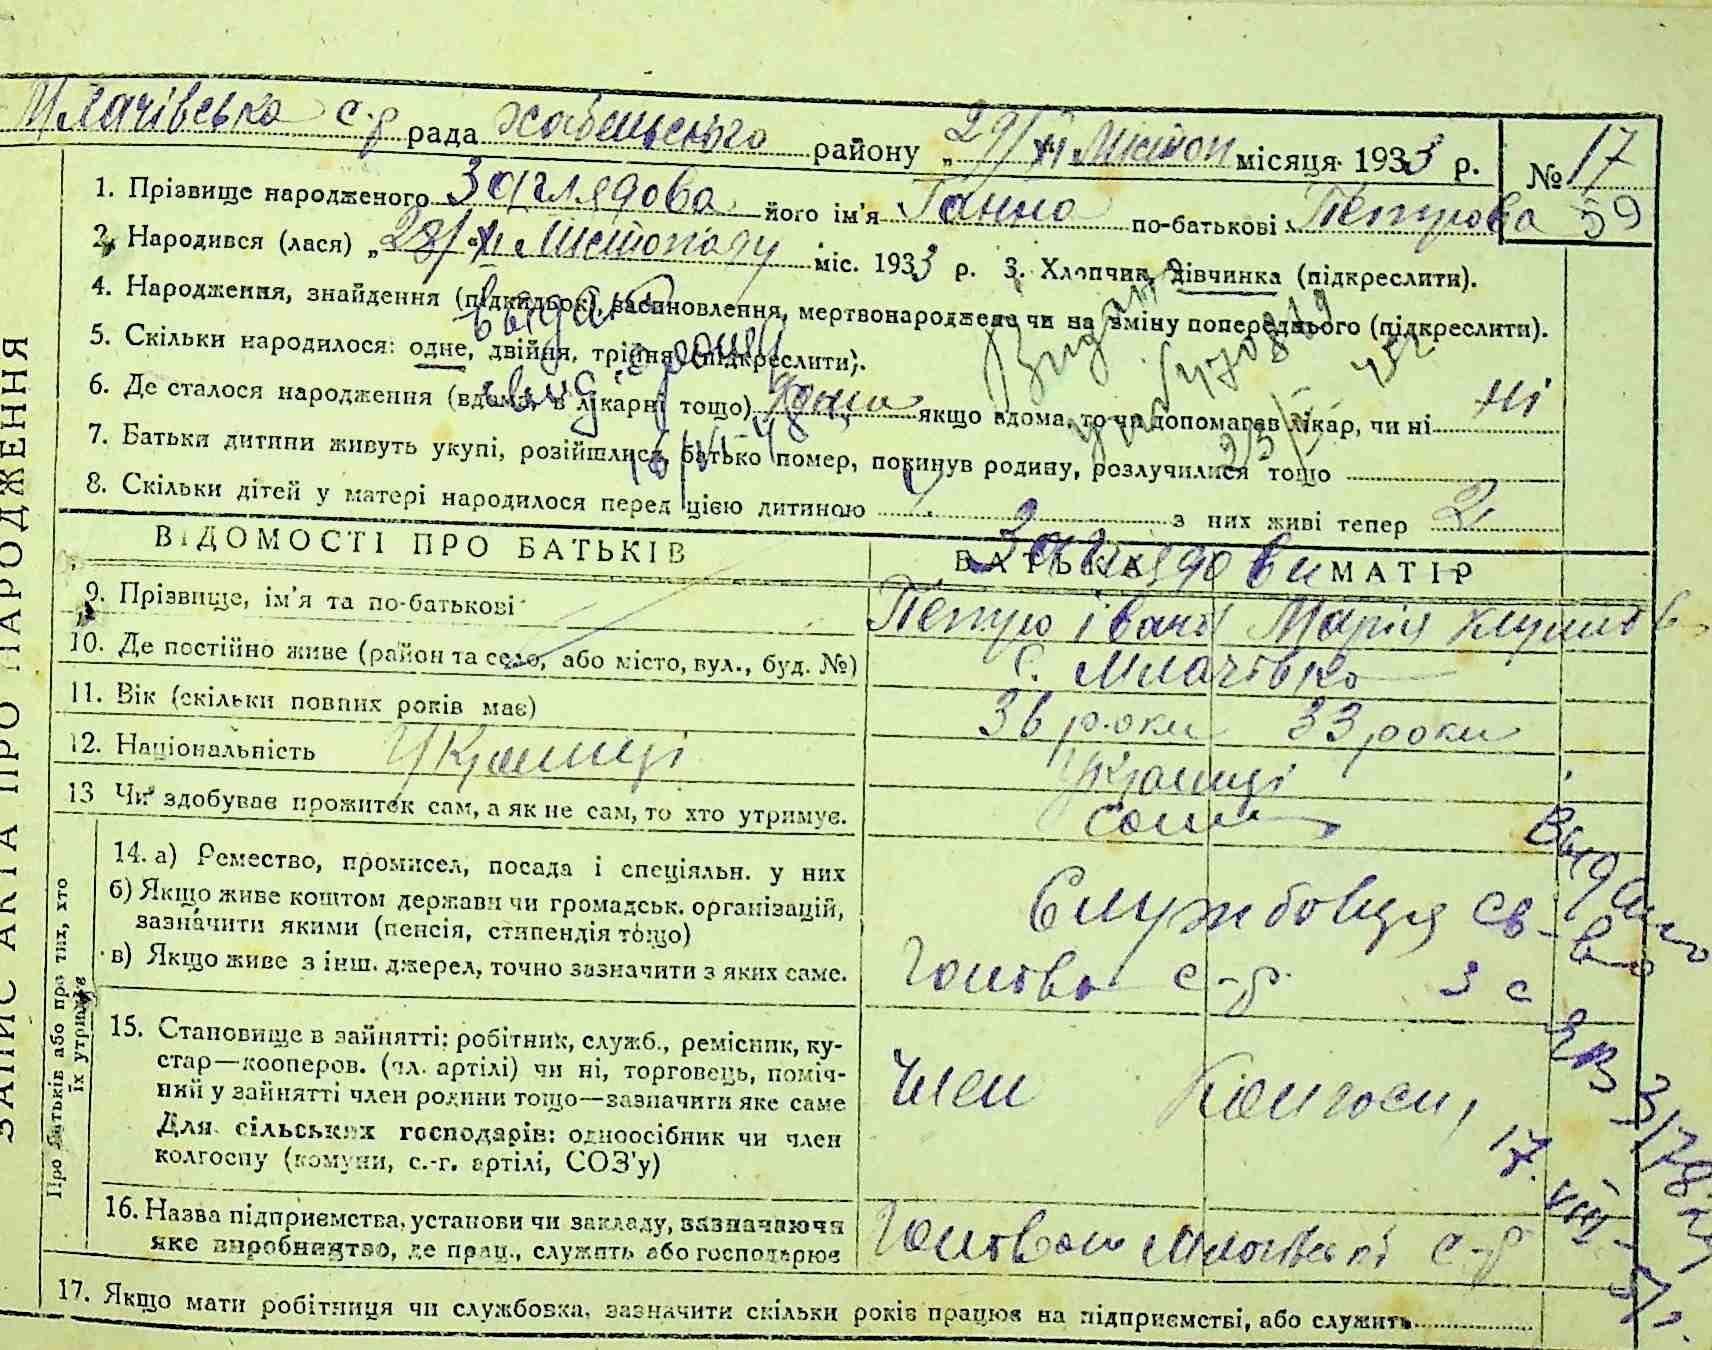 Млачівська с-р рада Хабенського району „29/XI Листоп місяця 1933 р. № 17
59
1. Прізвище народженого Заглядова його ім'я Ганна по-батькові Петрова
2. Народився (лася) „28/XI" Листопаду міс. 1933 р. 3. Хлопчик, дівчинка (підкреслити).
4. Народження, знайдення (підкидьок), всиновлення, мертвонароджене чи на зміну попереднього (підкреслити).
5. Скільки народилося: одне, двійня, трійня (підкреслити).
6. Де сталося народження (вдома, в лікарні тощо) дома якщо вдома, то чи допомагав лікар, чи ні ні
7. Батьки дитини живуть укупі, розійшлися, батько помер, покинув родину, розлучилися тощо
8. Скільки дітей у матері народилося перед цією дитиною з них живі тепер 2
ВІДОМОСТІ ПРО БАТЬКІВ БАТЬКА МАТІР
Заглядови
9. Прізвище, ім'я та по-батькові Петро Іван Марія
10. Де постійно живе (район та село, або місто, вул., буд. №) с. Млачівка
11. Вік (скільки повних років має) 36 роки 33 роки
12. Національність Українці Українці
13 Чи здобуває прожиток сам, а як не сам, то хто утримує. Сами
Про батьків або про тих, хто їх утримує
14. а) Ремество, промисел, посада і спеціяльн. у них
б) Якщо живе коштом держави чи громадськ. організацій,
зазначити якими (пенсія, стипендія тощо) Службовця
в) Якщо живе з інш. джерел, точно зазначити з яких саме. Голова с-р
15. Становище в зайнятті: робітник, служб., ремісник, ку-
стар—кооперов. (чл. артілі) чи ні, торговець, поміч-
ний у зайнятті член родини тощо—зазначити яке саме Член Колгоспу
Для сільських господарів: одноосібник чи член
колгоспу (комуни, с.-г. артілі, СОЗ'у)
16. Назва підприємства, установи чи закладу, зазначаючи
яке виробництво, де прац., служить або господарює Головою Млачівської с-р
17. Якщо мати робітниця чи службовка, зазначити скільки років працює на підприємстві, або служить
ЗАПИС АКТА ПРО НАРОДЖЕННЯ
Выдано
св-во
17. VIII-51.